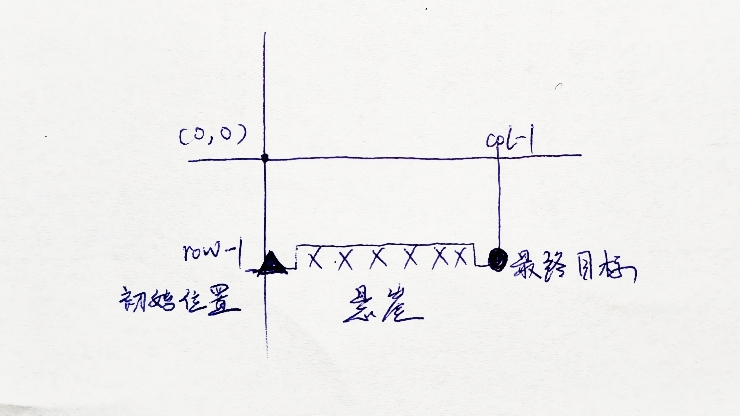 (0,0)
col-1
row-1
x x x x x x
最终目标
初始位置
悬崖